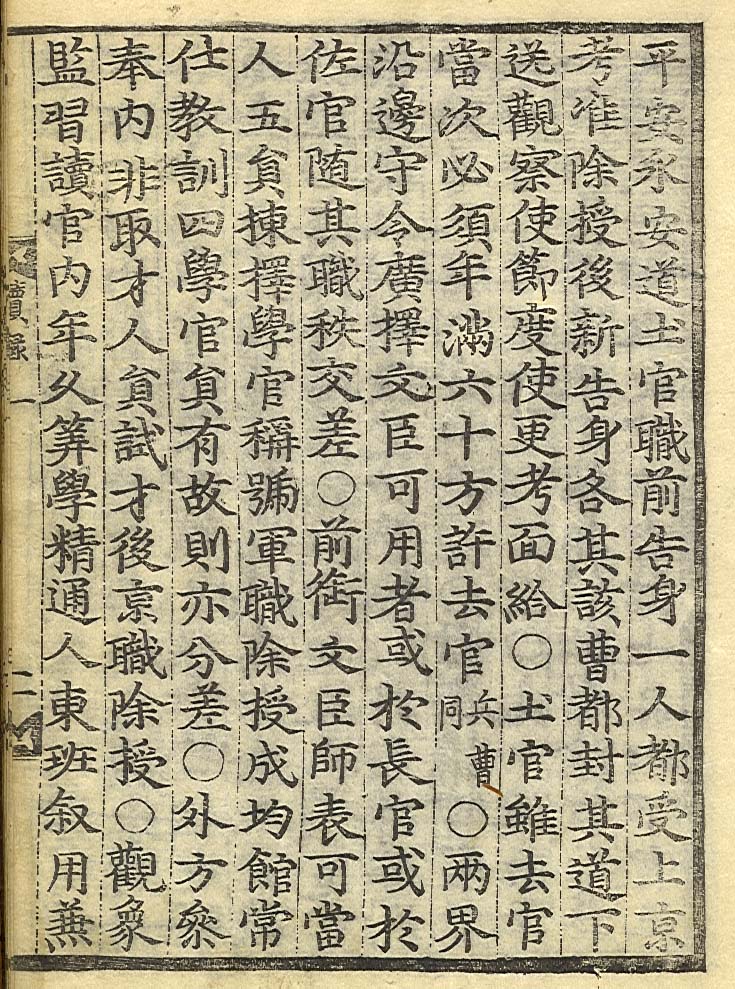 平安永安道土官職前告身一人都受上京
考准除授後新告身各其該曹都封其道下
送觀察使節度使更考面給○土官雖去官
當次必須年滿六十方許去官兵曹同○兩界
沿邊守令廣擇文臣可用者或於長官或於
佐官随其職秩交差○前銜文臣師表可當
人五貟揀擇學官稱號軍職除授成均館常
仕教訓四學官貟有故則亦分差○外方叅
奉内非取才人貟試才後京職除授○觀象
監習讀官内年久筭學精通人東班叙用兼
續錄 一
二